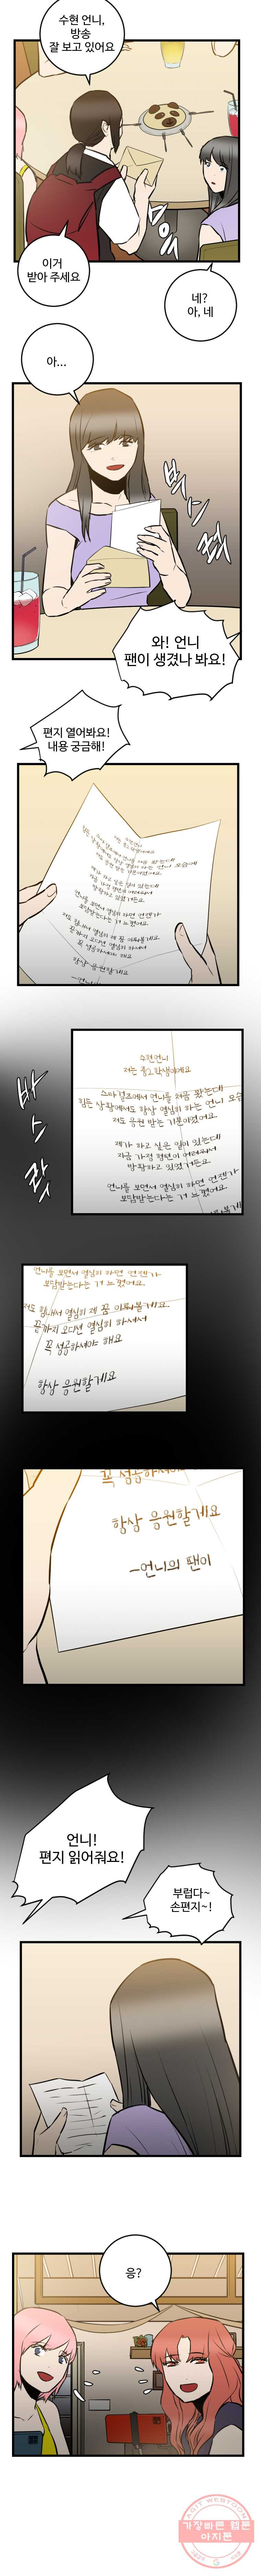 수현 언니,
방송
잘 보고 있어요
이거
받아 주세요
네?
아, 네
아...
와! 언니
팬이 생겼나 봐요!
편지 열어봐요!
내용 궁금해!
수현언니
저는 중2 학생이에요
언니를 처음 봤는데
힘든 상황에서도 항상 열심히 하는 언니 모습
저도 응원 받는 기분이었어요.
제가 하고 싶은 일이 있는데
가정 형편이 어려워서
망설이고 있었거든요.
언니를 보면서 열심히 하면 언젠가
보답받는다는 걸 느꼈어요.
언니를 보면서 열심히 하면 언젠가
보답받는다는 걸 느꼈어요.
저도 힘내서 열심히 제 꿈 이뤄볼게요.
끝까지 오디션 열심히 하셔서
꼭 성공하셔야 해요
항상 응원할게요
꼭 성공하셔야
항상 응원할게요
-언니의 팬이
언니!
편지 읽어줘요!
부럽다~
손편지~!
응?
AGIT WEBTOON
가장빠른 웹툰
아지툰